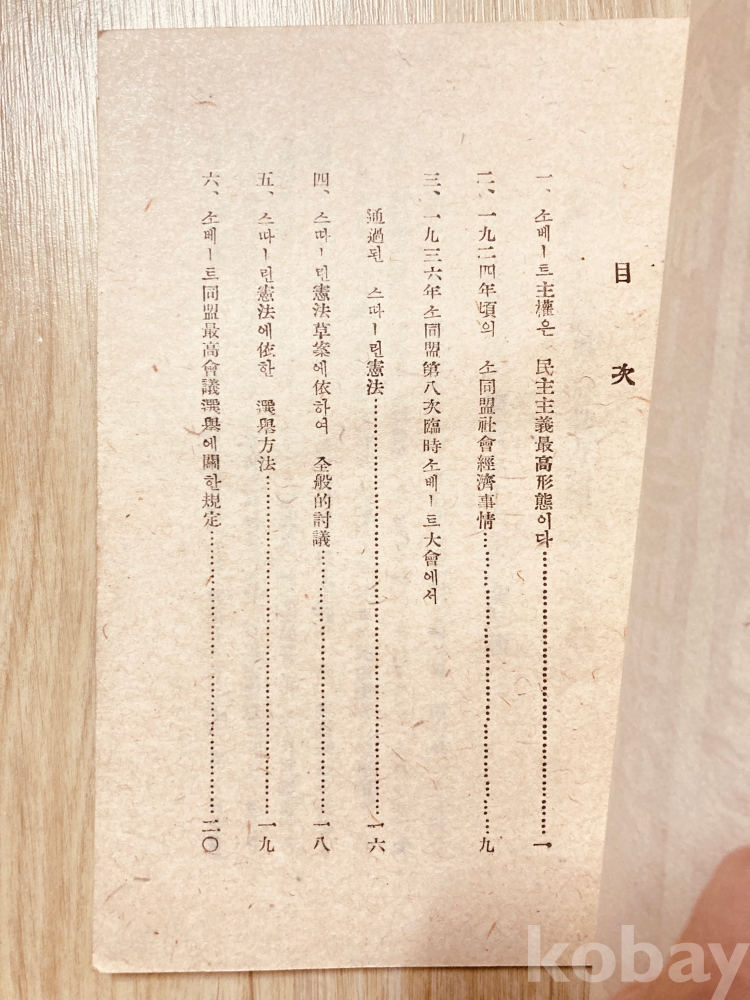 目 次
一、소베ー트主權은 民主主義最高形態이다……………一
二、一九二四年頃의 소同盟社會經濟事情……………九
三、一九三六年소同盟第八次臨時소베ー트大會에서
通過된 스따ー린憲法……………一六
四、스따ー린憲法草案에依하여 全般的討議……………一八
五、스따ー린憲法에依한 選擧方法……………一九
六、소베ー트同盟最高會議選擧에關한規定……………二〇
kobay